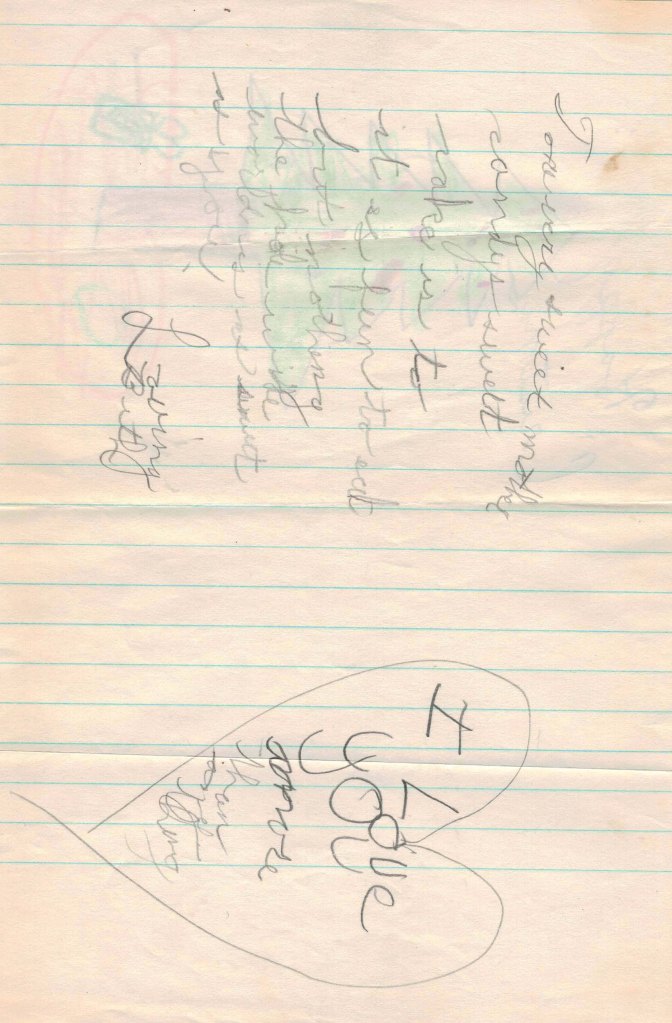 To a very sweet mother
candys sweet
cake is to
it is fun to eat
but nothing
the hole wide
world is as sweet
as you.
Loving
I Love
you
more
than
any
thing